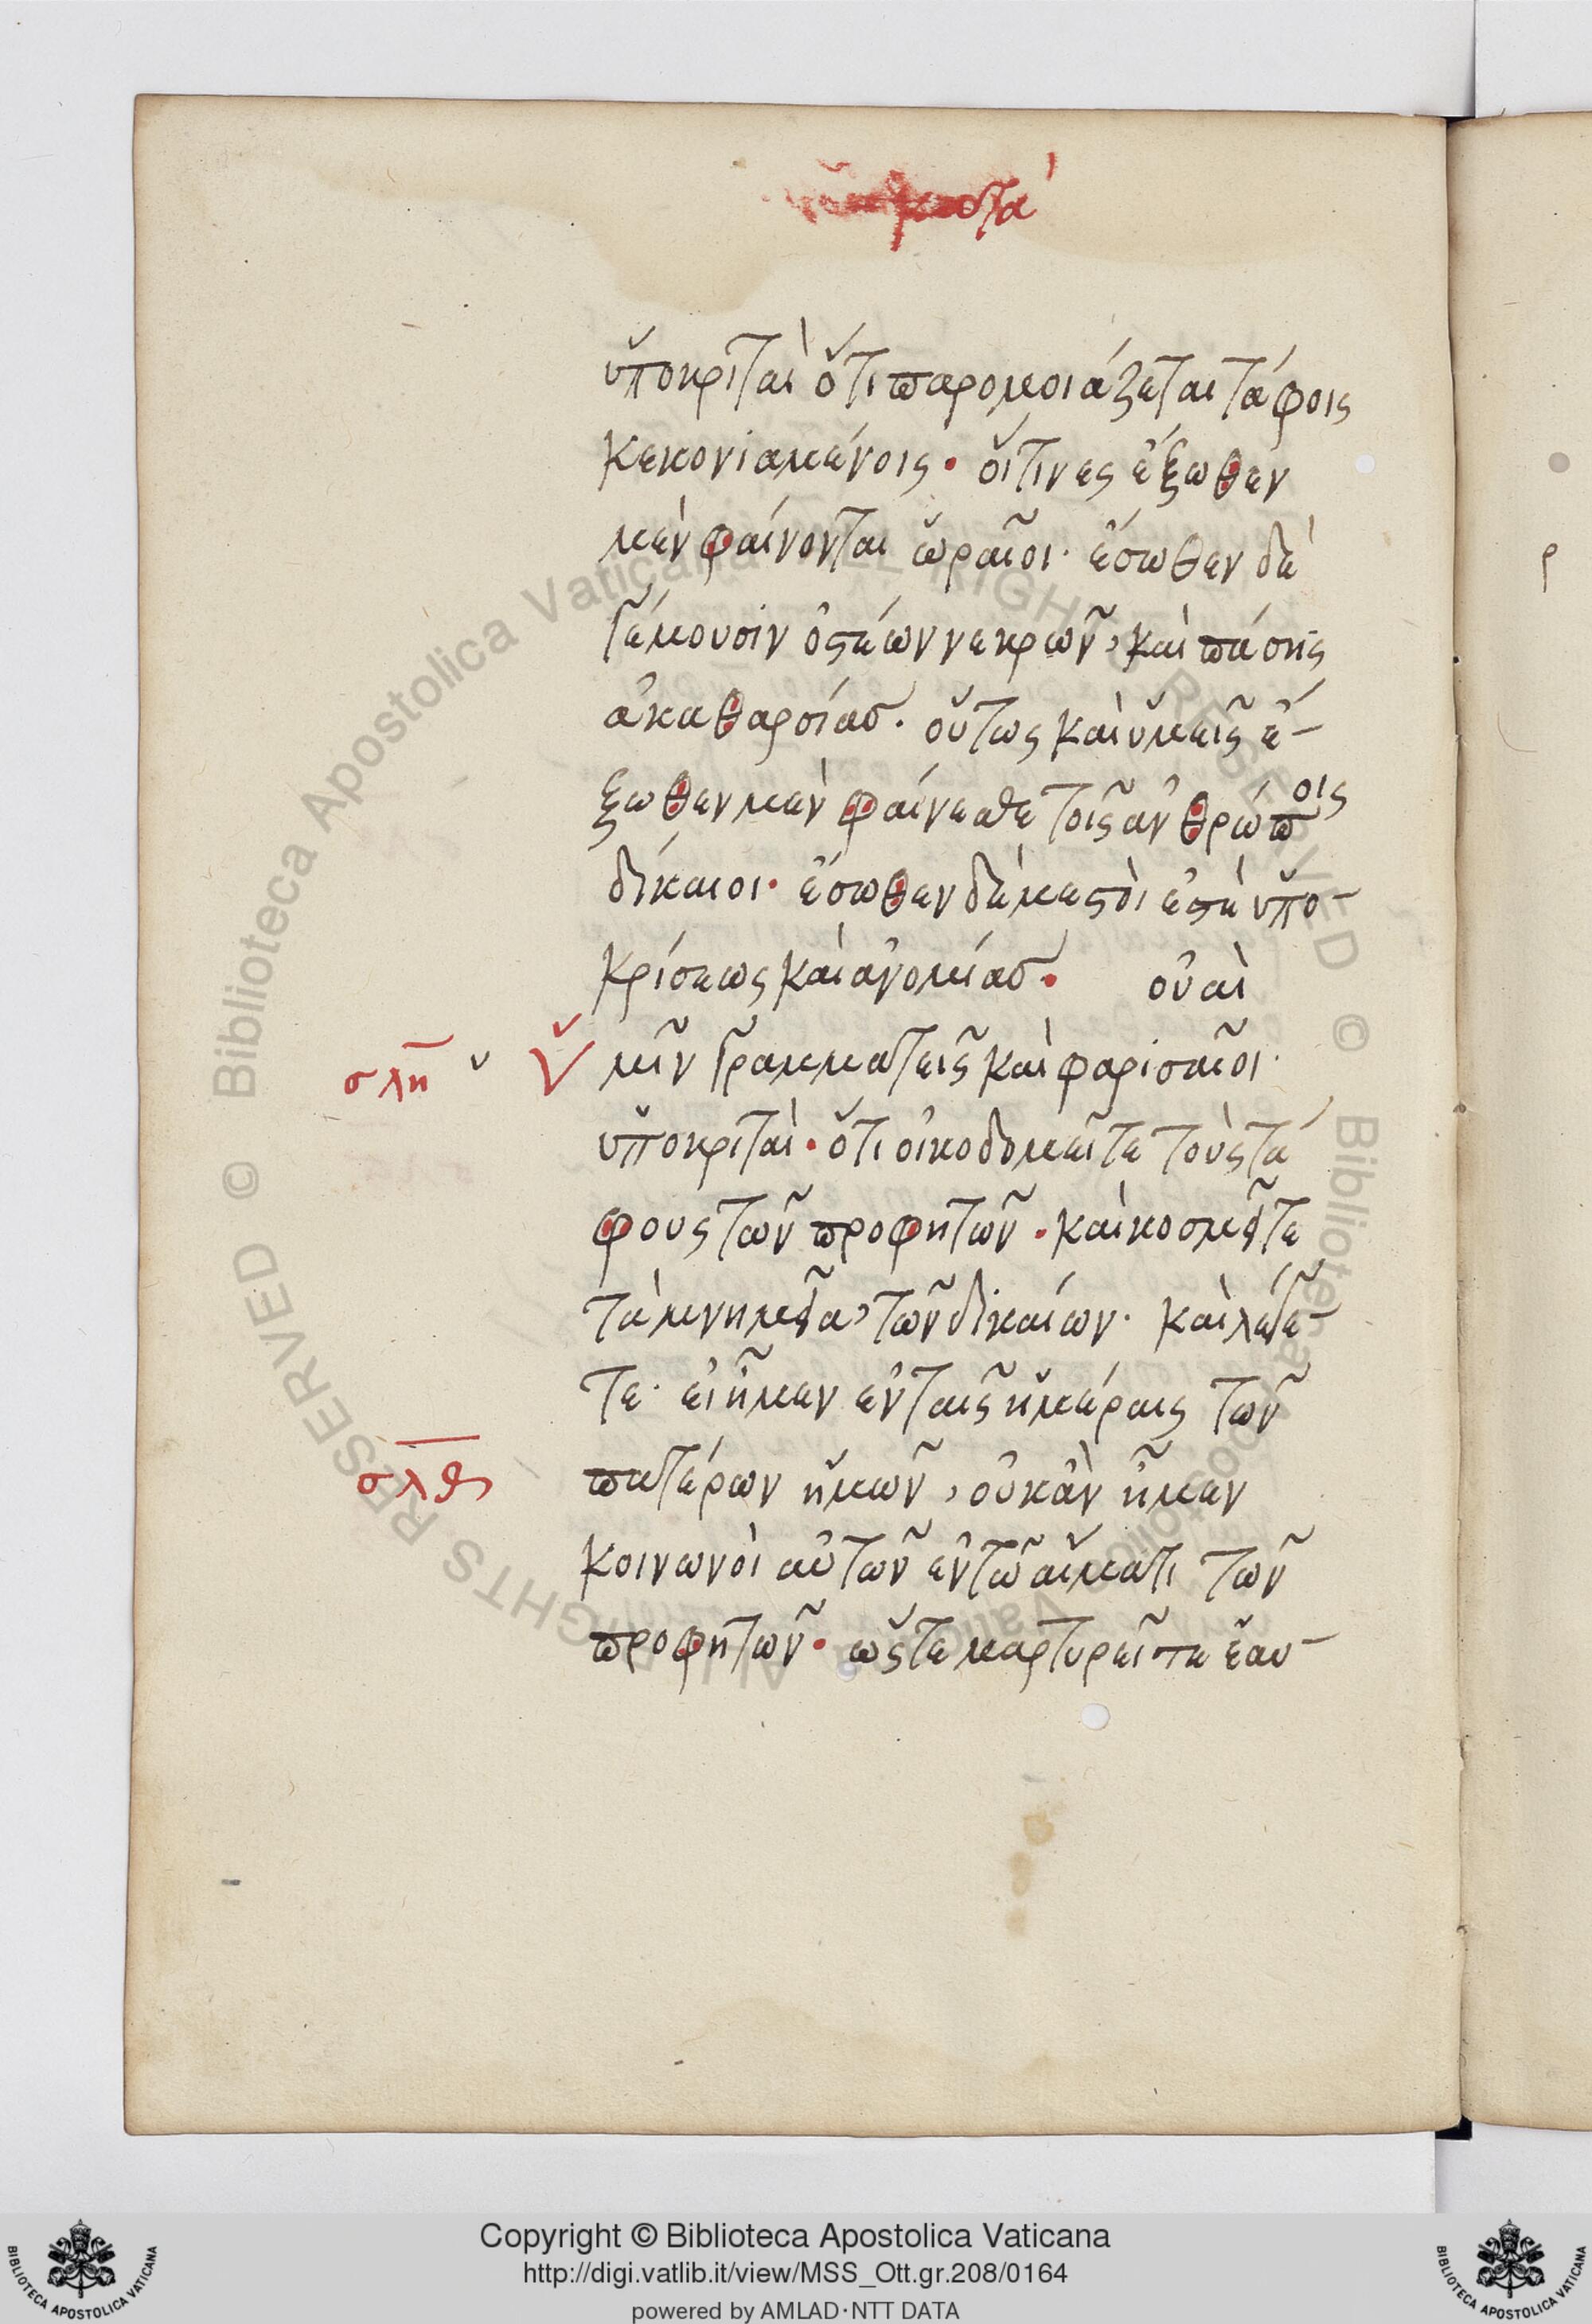 ὑποκριταὶ ὅτι παρομοιάζεται τάφοις
κεκονιαμένοις · οἵτινες ἔξωθεν
μὲν φαίνονται ὡραῖοι · ἔσωθεν δὲ
γέμουσιν ὀστέων νεκρῶν, καὶ πάσης
ἀκαθαρσίας · οὕτως καὶ ὑμεῖς ἔ-
ξωθεν μὲν φαίνεσθε τοῖς ἀνθρώποις
δίκαιοι · ἔσωθεν δὲ μεστοὶ ἐστὲ ὑπο-
κρίσεως καὶ ἀνομίας · οὐαὶ
σλη ὑ Ὑμῖν γραμματεῖς καὶ φαρισαῖοι ·
ὑποκριταὶ · ὅτι οἰκοδομεῖτε τοὺς τά
φους τῶν προφητῶν · καὶ κοσμεῖτε
τὰ μνημεῖα, τῶν δικαίων · καὶ λέγε-
τε · εἰ ἦμεν ἐν ταῖς ἡμέραις τῶν
σλθ πατέρων ἡμῶν, οὐκ ἂν ἦμεν
κοινωνοὶ αὐτῶν ἐν τῶ αἵματι τῶν
προφητῶν · ὥστε μαρτυρεῖτε ἑαυ-
Copyright © Biblioteca Apostolica Vaticana
http://digi.vatlib.it/view/MSS_Ott.gr.208/0164
powered by AMLAD·NTT DATA
BIBLIOTECA APOSTOLICA VATICANA
BIBLIOTECA APOSTOLICA VATICANA
© Biblioteca Apostolica Vaticana ALL RIGHTS RESERVED
© Biblioteca Apostolica Vaticana ALL RIGHTS RESERVED